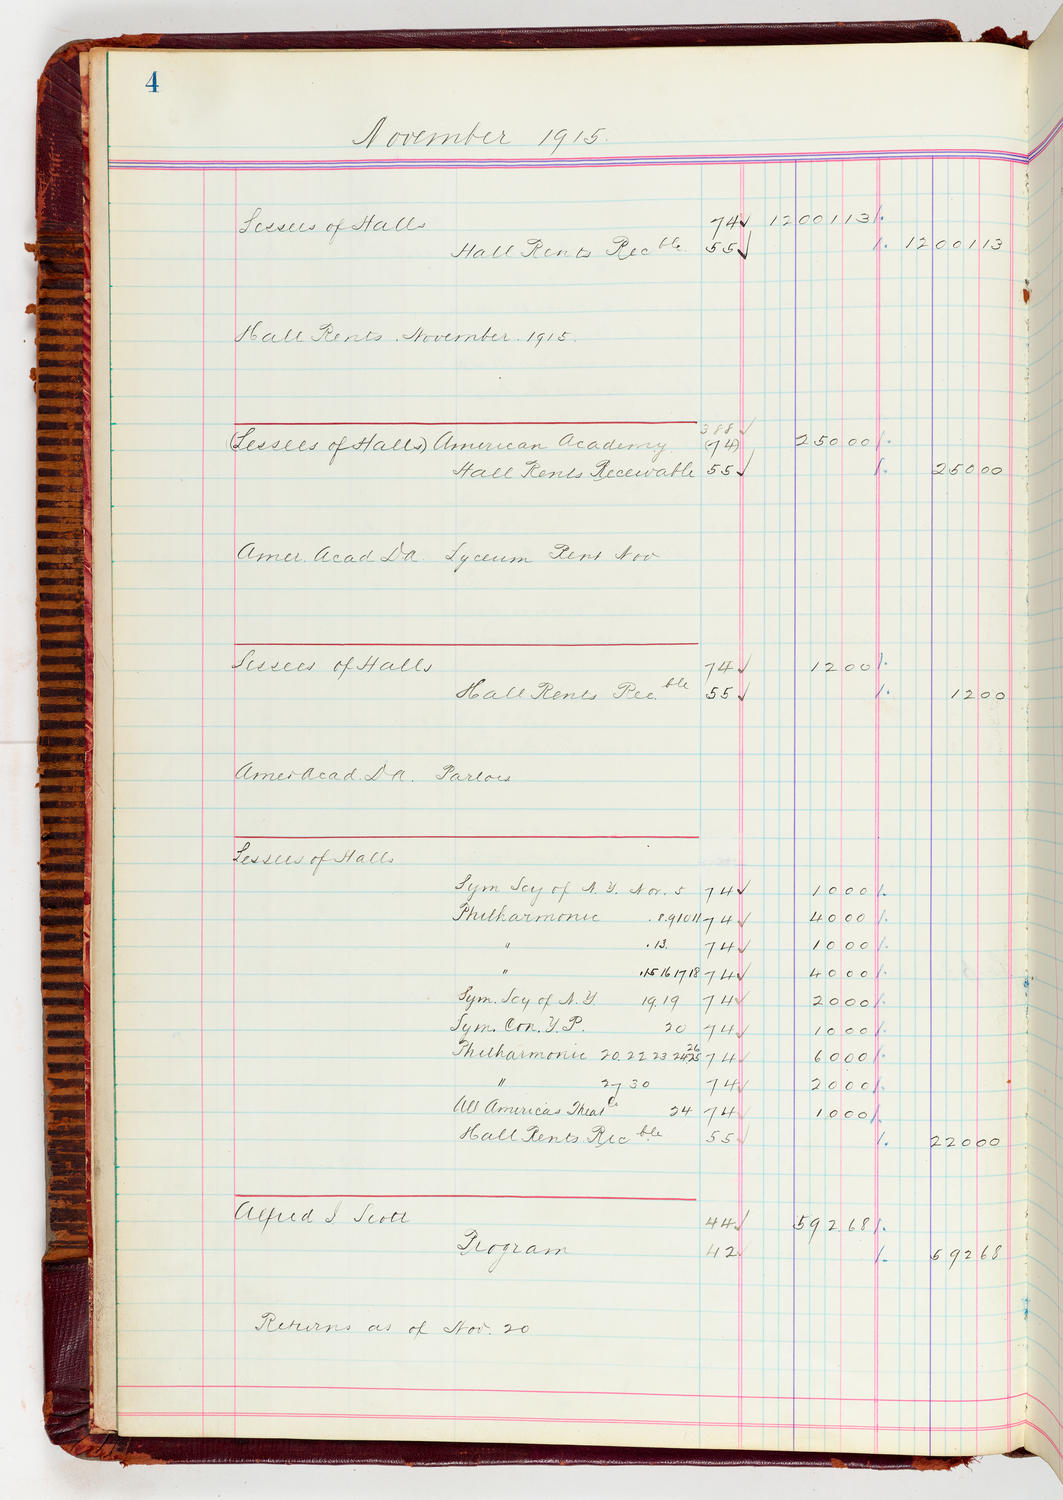 4
November 1915.
Lessees of Halls 74 1200113
Hall Rents Rec ble 55 1200113
Hall Rents. November. 1915.
388
(Lessees of Halls) American Academy (74) 25000
Hall Rents Receivable 55 25000
Amer. Acad D.A. Lyceum Rent Nov
Lessees of Halls 74 1200
Hall Rents Rec. ble 55 1200
Amer Acad. D.A. Parlors
Lessees of Halls
Sym Scy of N.Y. Nov. 5 74 1000
Philharmonic . 8.9 10 11 74 4000
" . 13. 74 1000
" . 15 16 17 18 74 4000
Sym. Scy of N.Y. 19, 19 74 2000
Sym. Con. Y.P. 20 74 1000
Philharmonic 20. 22 23 24 25 26 74 6000
" 27 30 74 2000
All Americas Theat 24 74 1000
Hall Rents Rec ble 55 22000
Alfred I Scott 44 59268
Program 42 59268
Returns as of Nov. 20